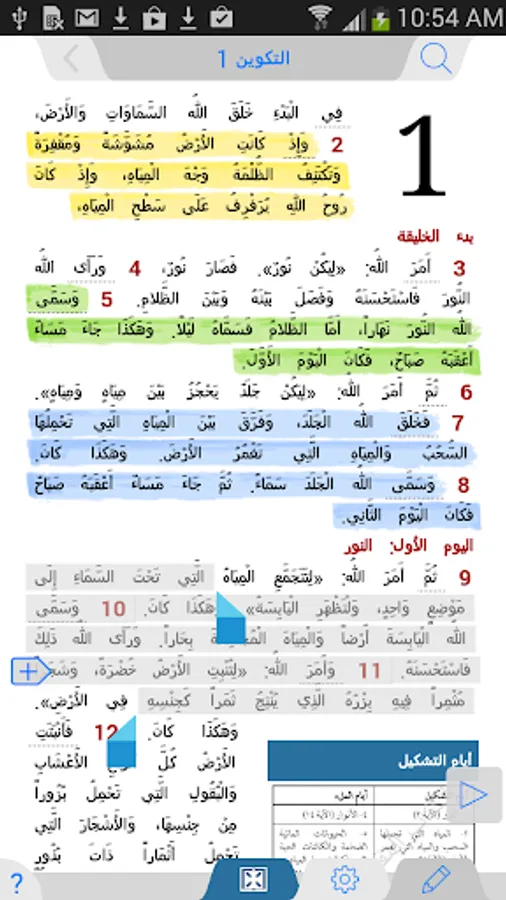 10:54 AM
التكوين 1
1
فِي الْبَدْءِ خَلَقَ اللهُ السَّمَاوَاتِ وَالأَرْضَ،
2 وَإِذْ كَانَتِ الأَرْضُ مُشَوَّشَةً وَمُقْفِرَةً
وَتَكْتَنِفُ الظُّلْمَةُ وَجْهَ الْمِيَاهِ، وَإِذْ كَانَ
رُوحُ اللهِ يُرَفْرِفُ عَلَى سَطْحِ الْمِيَاهِ،
بدء الخليقة
3 أَمَرَ اللهُ: «لِيَكُنْ نُورٌ». فَصَارَ نُورٌ، 4 وَرَأَى اللهُ
النُّورَ فَاسْتَحْسَنَهُ وَفَصَلَ بَيْنَهُ وَبَيْنَ الظَّلامِ. 5 وَسَمَّى
اللهُ النُّورَ نَهَاراً، أَمَّا الظَّلامُ فَسَمَّاهُ لَيْلاً. وَهَكَذَا جَاءَ مَسَاءٌ
أَعْقَبَهُ صَبَاحٌ، فَكَانَ الْيَوْمَ الأَوَّلَ.
6 ثُمَّ أَمَرَ اللهُ: «لِيَكُنْ جَلَدٌ يَحْجُزُ بَيْنَ مِيَاهٍ وَمِيَاهٍ».
7 فَخَلَقَ اللهُ الْجَلَدَ، وَفَرَّقَ بَيْنَ الْمِيَاهِ الَّتِي تَحْمِلُهَا
السُّحُبُ وَالْمِيَاهِ الَّتِي تَغْمُرُ الأَرْضَ. وَهَكَذَا كَانَ.
8 وَسَمَّى اللهُ الْجَلَدَ سَمَاءً. ثُمَّ جَاءَ مَسَاءٌ أَعْقَبَهُ صَبَاحٌ
فَكَانَ الْيَوْمَ الثَّانِي.
اليوم الأول: النور
9 ثُمَّ أَمَرَ اللهُ: «لِتَتَجَمَّعِ الْمِيَاهُ الَّتِي تَحْتَ السَّمَاءِ إِلَى
مَوْضِعٍ وَاحِدٍ، وَلْتَظْهَرِ الْيَابِسَةُ» وَهَكَذَا كَانَ. 10 وَسَمَّى
اللهُ الْيَابِسَةَ أَرْضاً وَالْمِيَاهَ بِحَاراً. وَرَأَى اللهُ ذَلِكَ
فَاسْتَحْسَنَهُ. 11 وَأَمَرَ اللهُ: «لِتُنْبِتِ الأَرْضُ خُضْرَةً،
مُثْمِراً فِيهِ بِزْرُهُ الَّذِي يُنْتِجُ ثَمَراً كَجِنْسِهِ فِي الأَرْضِ».
وَهَكَذَا كَانَ. 12 فَأَنْبَتَتِ
الأَرْضُ كُلَّ الأَعْشَابِ
وَالْبُقُولِ الَّتِي تَحْمِلُ بُزُوراً
مِنْ جِنْسِهَا، وَالأَشْجَارَ الَّتِي
تَحْمِلُ أَثْمَاراً ذَاتَ بُذُورٍ
أيام التشكيل
أيام الملء
?